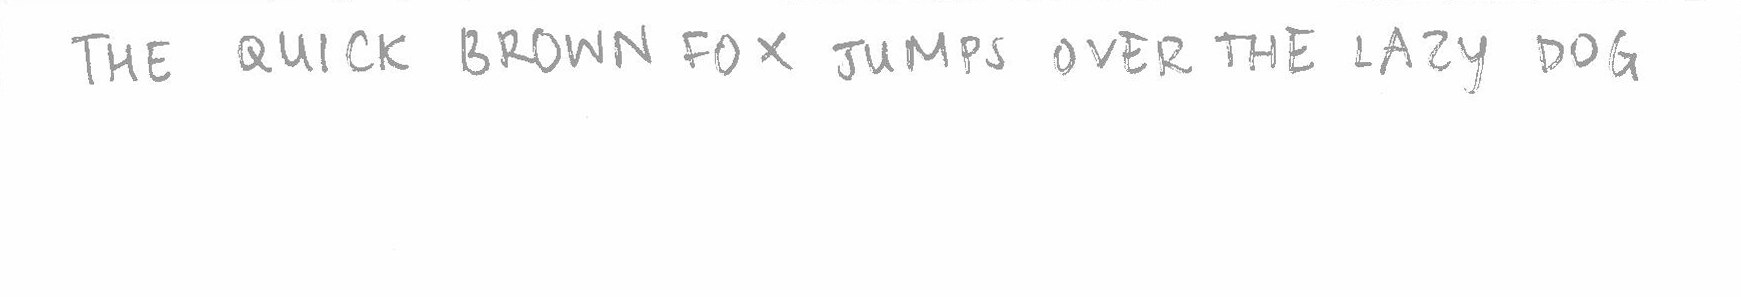 THE QUICK BROWN FOX JUMPS OVER THE LAZY DOG